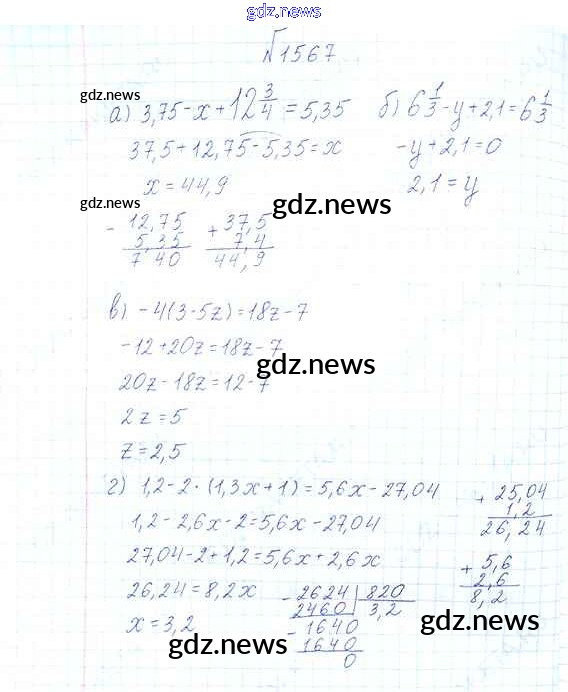 gdz.news
№1567
gdz.news
а) 3,75-x+12 3/4=5,35 б) 6 1/3-y+2,1=6 1/3
37,5+12,75-5,35=x -y+2,1=0
x=44,9 2,1=y
gdz.news
gdz.news
- 12,75 + 37,5
5,35 7,4
7 40 44,9
в) -4(3-5z)=18z-7
-12+20z=18z-7
gdz.news
20z-18z=12-7
2z=5
z=2,5
г) 1,2-2·(1,3x+1)=5,6x-27,04 + 25,04
1,2-2,6x-2=5,6x-27,04 1,2
26,24
27,04-2+1,2=5,6x+2,6x + 5,6
26,24=8,2x - 2624 | 820 2,6
2460 3,2 8,2
x=3,2 - 1640
1640
0
gdz.news
gdz.news